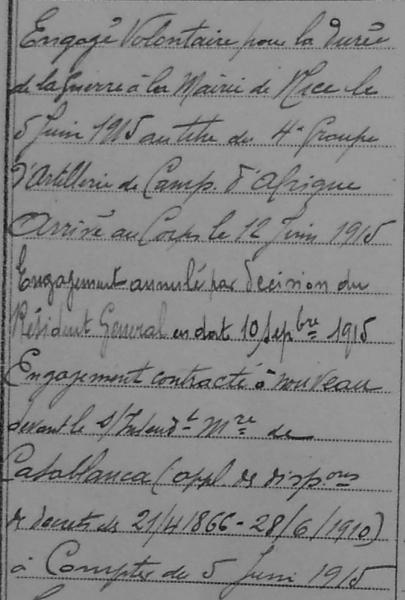 Engagé Volontaire pour la Durée
de la Guerre à la Mairie de Nice le
5 Juin 1915 au titre du 4e Groupe
d'Artillerie de Camp. d'Afrique
Arrivé au Corps le 12 Juin 1915
Engagement annulé par décision du
Résident Général en dat 10 Sepbre 1915
Engagement contracté à nouveau
devant le S/Intendt Mre de
Casablanca (appl. des dispons
de decrets des 21/4 1866 - 28/6/1910)
à Compter du 5 Juin 1915